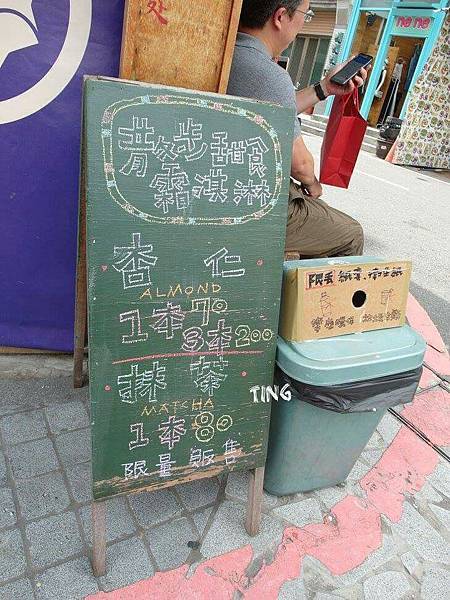 處
散步甜食
霜淇淋
杏仁
ALMOND
1本70
3本200
抹茶
MATCHA
1本80
限量販售
TING
nene